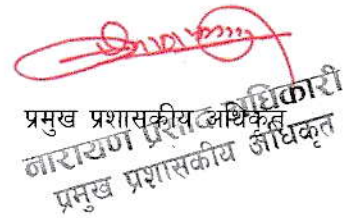 प्रमुख प्रशासकीय अधिकृत
नारायण प्रसाद अधिकारी
प्रमुख प्रशासकीय अधिकृत